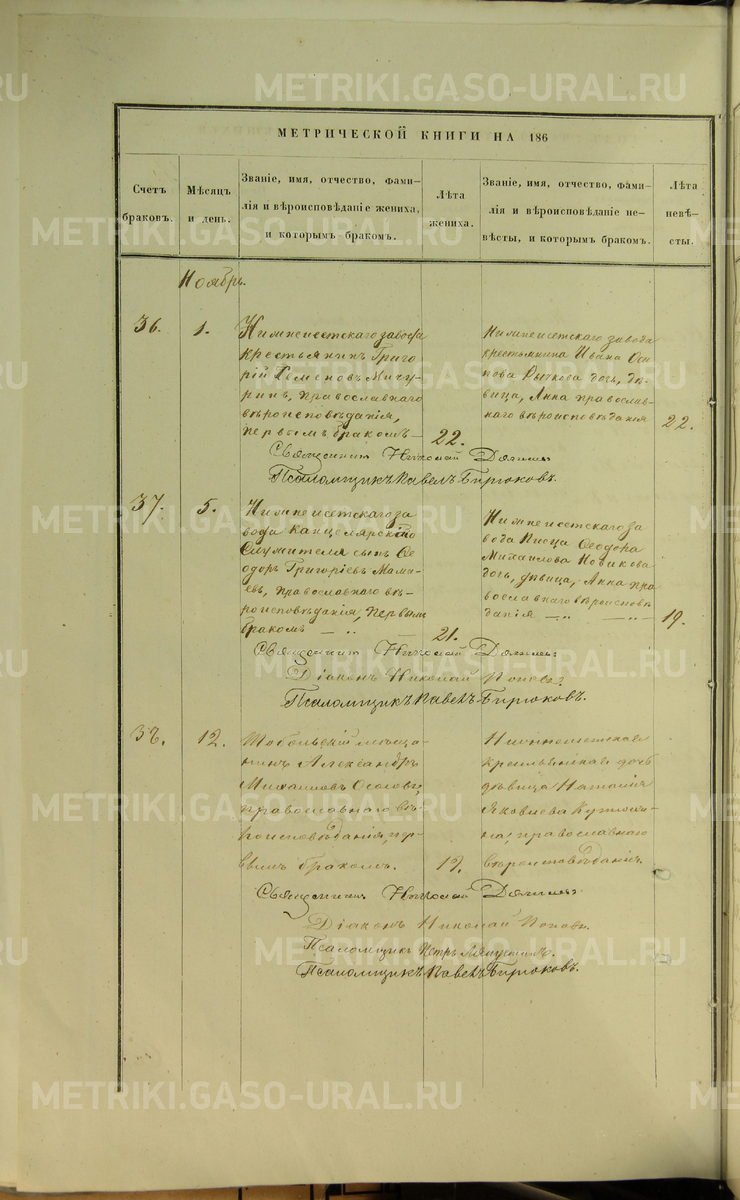 МЕТРИЧЕСКОЙ КНИГИ НА 186
Счетъ
браковъ.
Мѣсяцъ
и день.
Званіе, имя, отчество, фами-
лія и вѣроисповѣданіе жениха,
и которымъ бракомъ.
Лѣта
жениха.
Званіе, имя, отчество, фами-
лія и вѣроисповѣданіе не-
вѣсты, и которымъ бракомъ.
Лѣта
невѣ-
сты.
Ноябрь.
36.
1.
Нижнеисетскаго завода
крестьянинъ Григо
рій Семеновъ Мичу
ринъ, православнаго
вѣроисповѣданія,
первымъ бракомъ —
22.
Нижнеисетскаго завода
крестьянина Ивана Оси
пова Рычкова дочь, дѣ-
вица, Анна православ-
наго вѣроисповѣданія
22.
Священникъ Николай
Псаломщикъ Павелъ Бирюковъ.
37.
5.
Нижнеисетскаго за
вода Канцелярскаго
Служителя сынъ Ѳе
одоръ Григоріевъ Мама
евъ, православнаго вѣ-
роисповѣданія, первымъ
бракомъ — „ —
21.
Нижнеисетскаго за
вода Писца Ѳеодора
Михаилова Новикова
дочь, дѣвица, Анна пра
вославнаго вѣроисповѣ
данія — „ — „ —
19.
Священникъ Николай
Діаконъ Николай Поповъ
Псаломщикъ Павелъ Бирюковъ.
38.
12.
Тобольскій мѣща-
нинъ Александръ
Михаиловъ
православнаго вѣ-
роисповѣданія, пер-
вымъ бракомъ.
19.
Нижнеисетская
крестьянская дочь
дѣвица Наталія
Яковлева
православнаго
вѣроисповѣданія.
Священникъ Николай
Діаконъ Николай Поповъ.
Псаломщикъ Петръ
Псаломщикъ Павелъ Бирюковъ.
METRIKI.GASO-URAL.RU